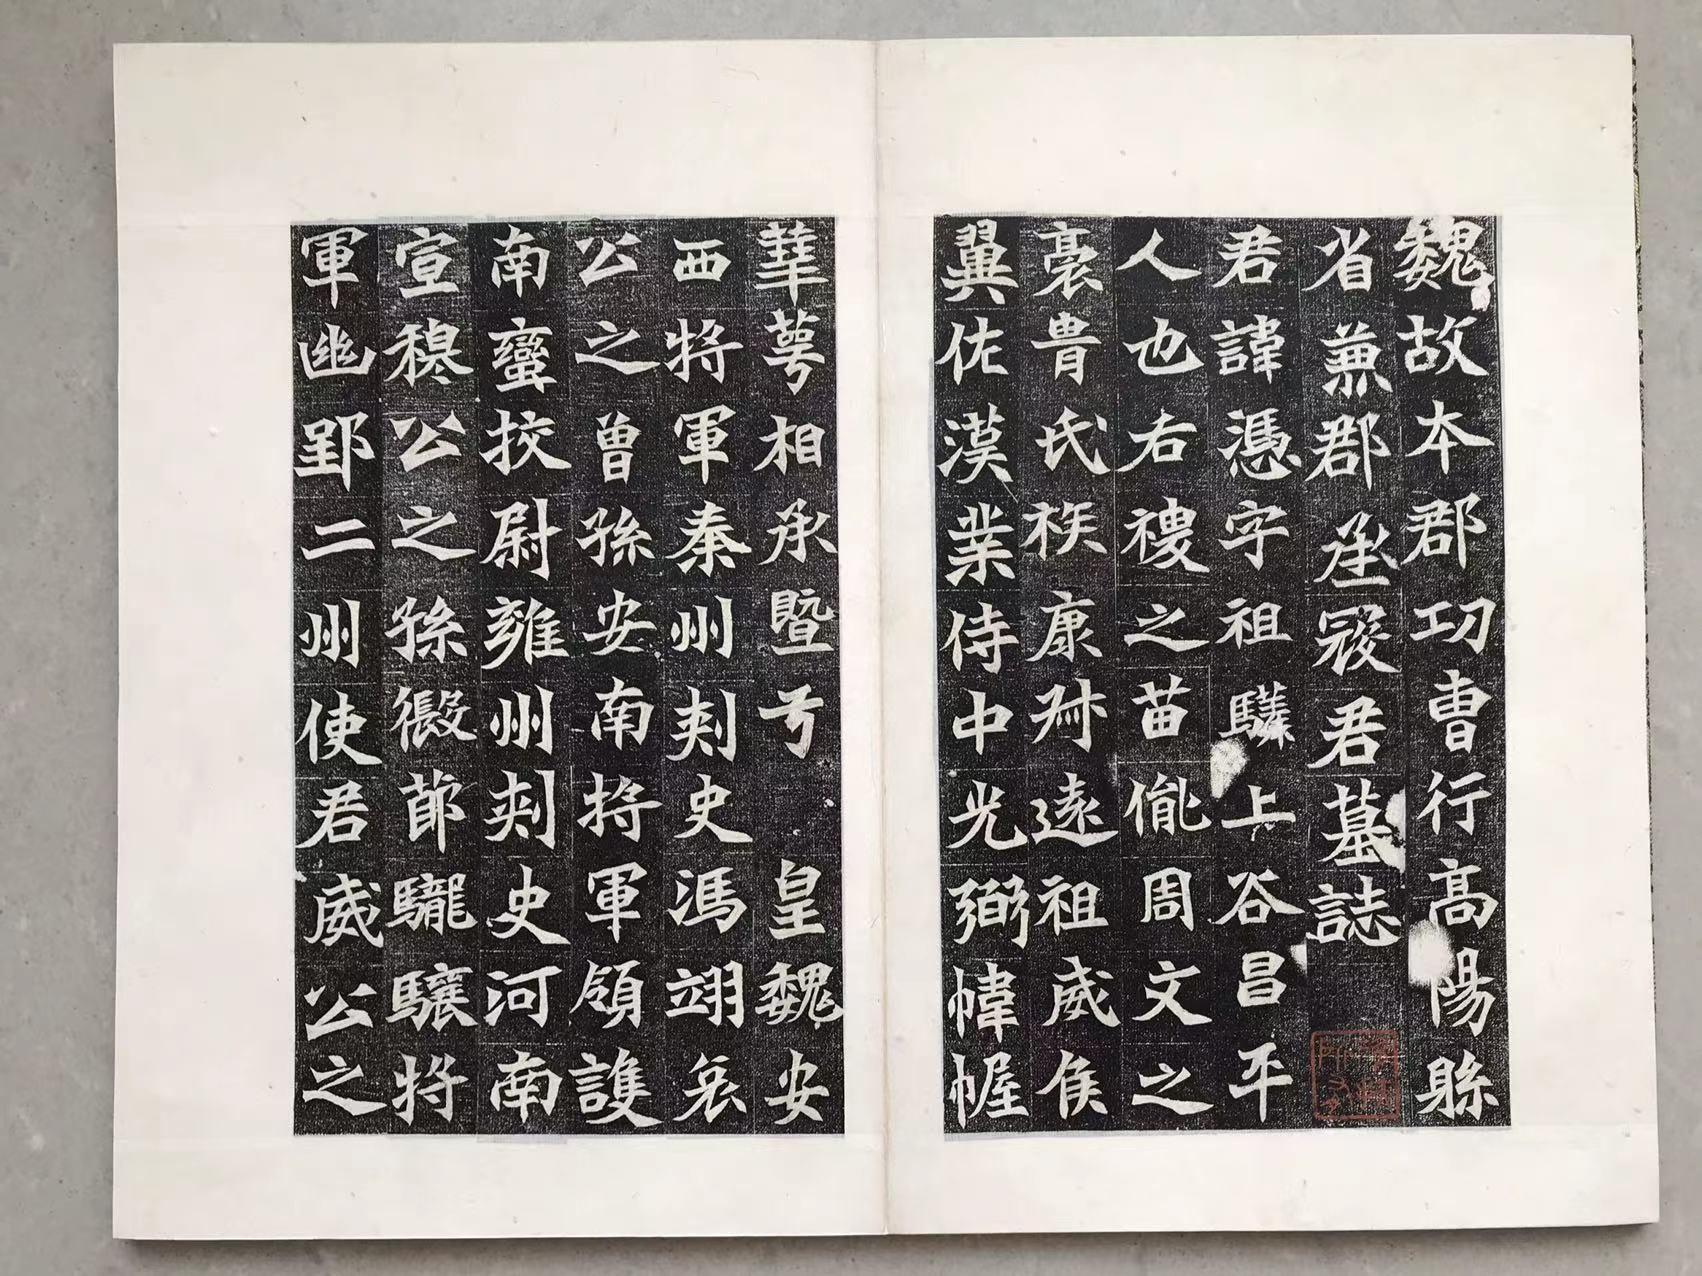 魏故本郡功曹行高陽縣
省兼郡丞寇君墓誌
君諱憑字祖驎上谷昌平
人也右稷之苗胤周文之
裔胄氏族康叔遠祖威侯
翼佐漢業侍中光弼幃幄
華萼相承暨于皇魏安
西將軍秦州刺史馮翊哀
公之曾孫安南將軍領護
南蠻挍尉雍州刺史河南
宣穆公之孫假節驡驤將
軍幽郢二州使君威公之